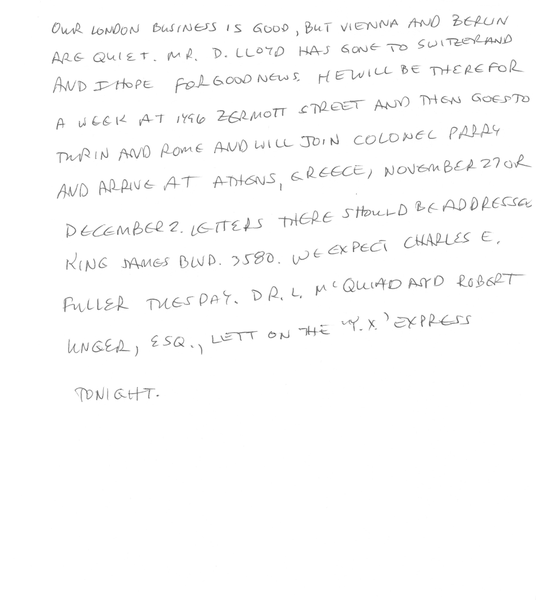 OUR LONDON BUSINESS IS GOOD, BUT VIENNA AND BERLIN
ARE QUIET. MR. D. LLOYD HAS GONE TO SWITZERAND
AND I HOPE FOR GOOD NEWS. HE WILL BE THERE FOR
A WEEK AT 1496 ZERMOTT STREET AND THEN GOES TO
TURIN AND ROME AND WILL JOIN COLONEL PARRY
AND ARRIVE AT ATHENS, GREECE, NOVEMBER 27 OR
DECEMBER 2. LETTERS THERE SHOULD BE ADDRESSED
KING JAMES BLVD. 3580. WE EXPECT CHARLES E.
FULLER TUESDAY. DR. L. MCQUAID AND ROBERT
UNGER, ESQ., LETT ON THE "Y.X.' EXPRESS
TONIGHT.